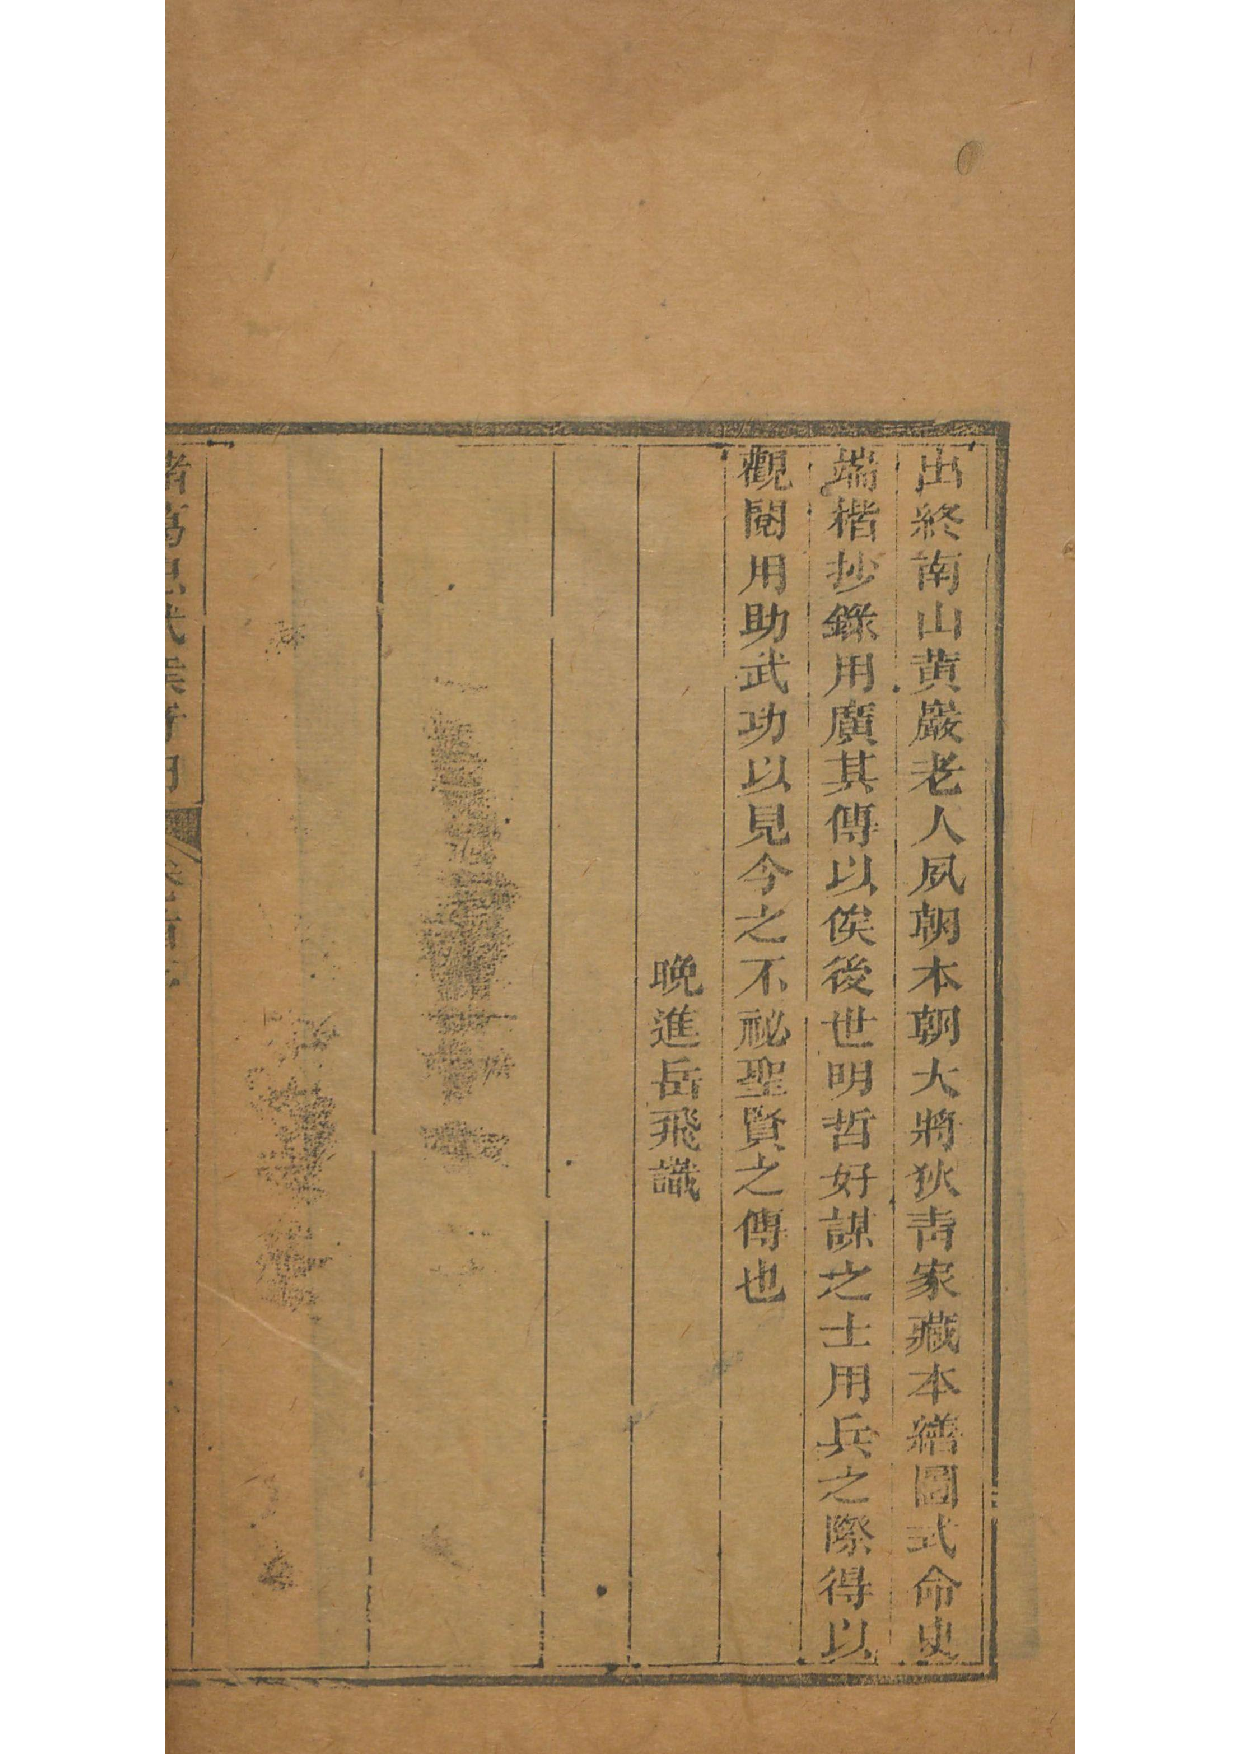 出終南山黃巖老人夙朝本朝大將狄青家藏本繕圖式命史
端楷抄錄用廣其傳以俟後世明哲好謀之士用兵之際得以
觀閱用助武功以見今之不祕聖賢之傳也
晚進岳飛識
諸葛忠武侯
卷首